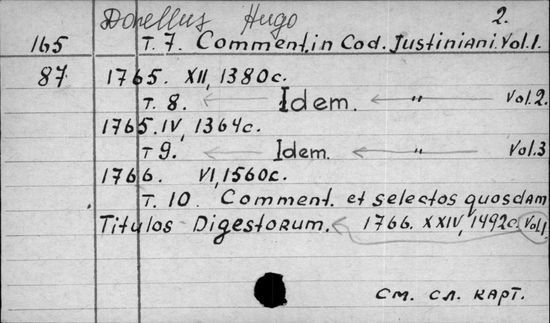 Donellus Hugo 2.
165 T. 7. Comment. in Cod. Justiniani. Vol. 1.
87 1765. XII, 1380c.
T. 8. ← Idem. ← " Vol. 2.
1765. IV, 1364c.
T 9. ← Idem. ← " Vol. 3
1766. VI, 1560c.
T. 10. Comment. et selectos quosdam
Titulos Digestorum. ← 1766. XXIV, 1492c. Vol. 1
См. сл. карт.